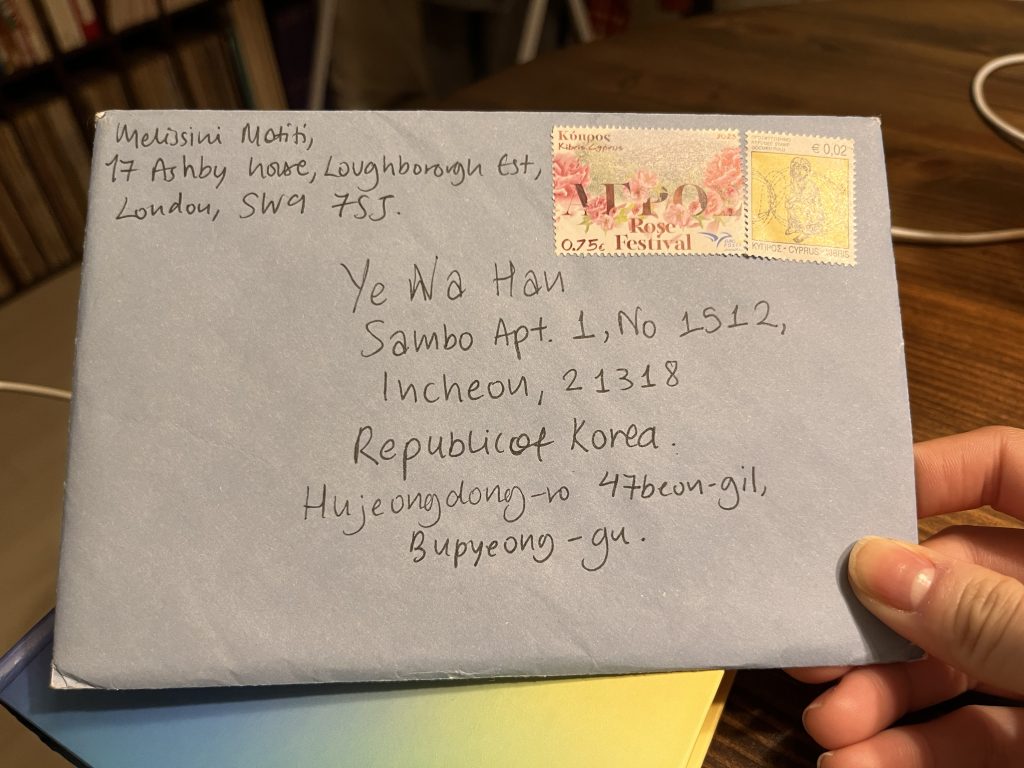 Melissini Motiti,
17 Ashby house, Loughborough Est,
London, SW9 7SJ.
Κύπρος 2023
Kibris Cyprus
ΛΕΡΟΣ
Rose
Festival
0.75€
€ 0,02
ΚΥΠΡΟΣ - CYPRUS - KIBRIS
Ye Na Han
Sambo Apt. 1, No 1512,
Incheon, 21318
Republic of Korea.
Hujeongdong-ro 47beon-gil,
Bupyeong-gu.